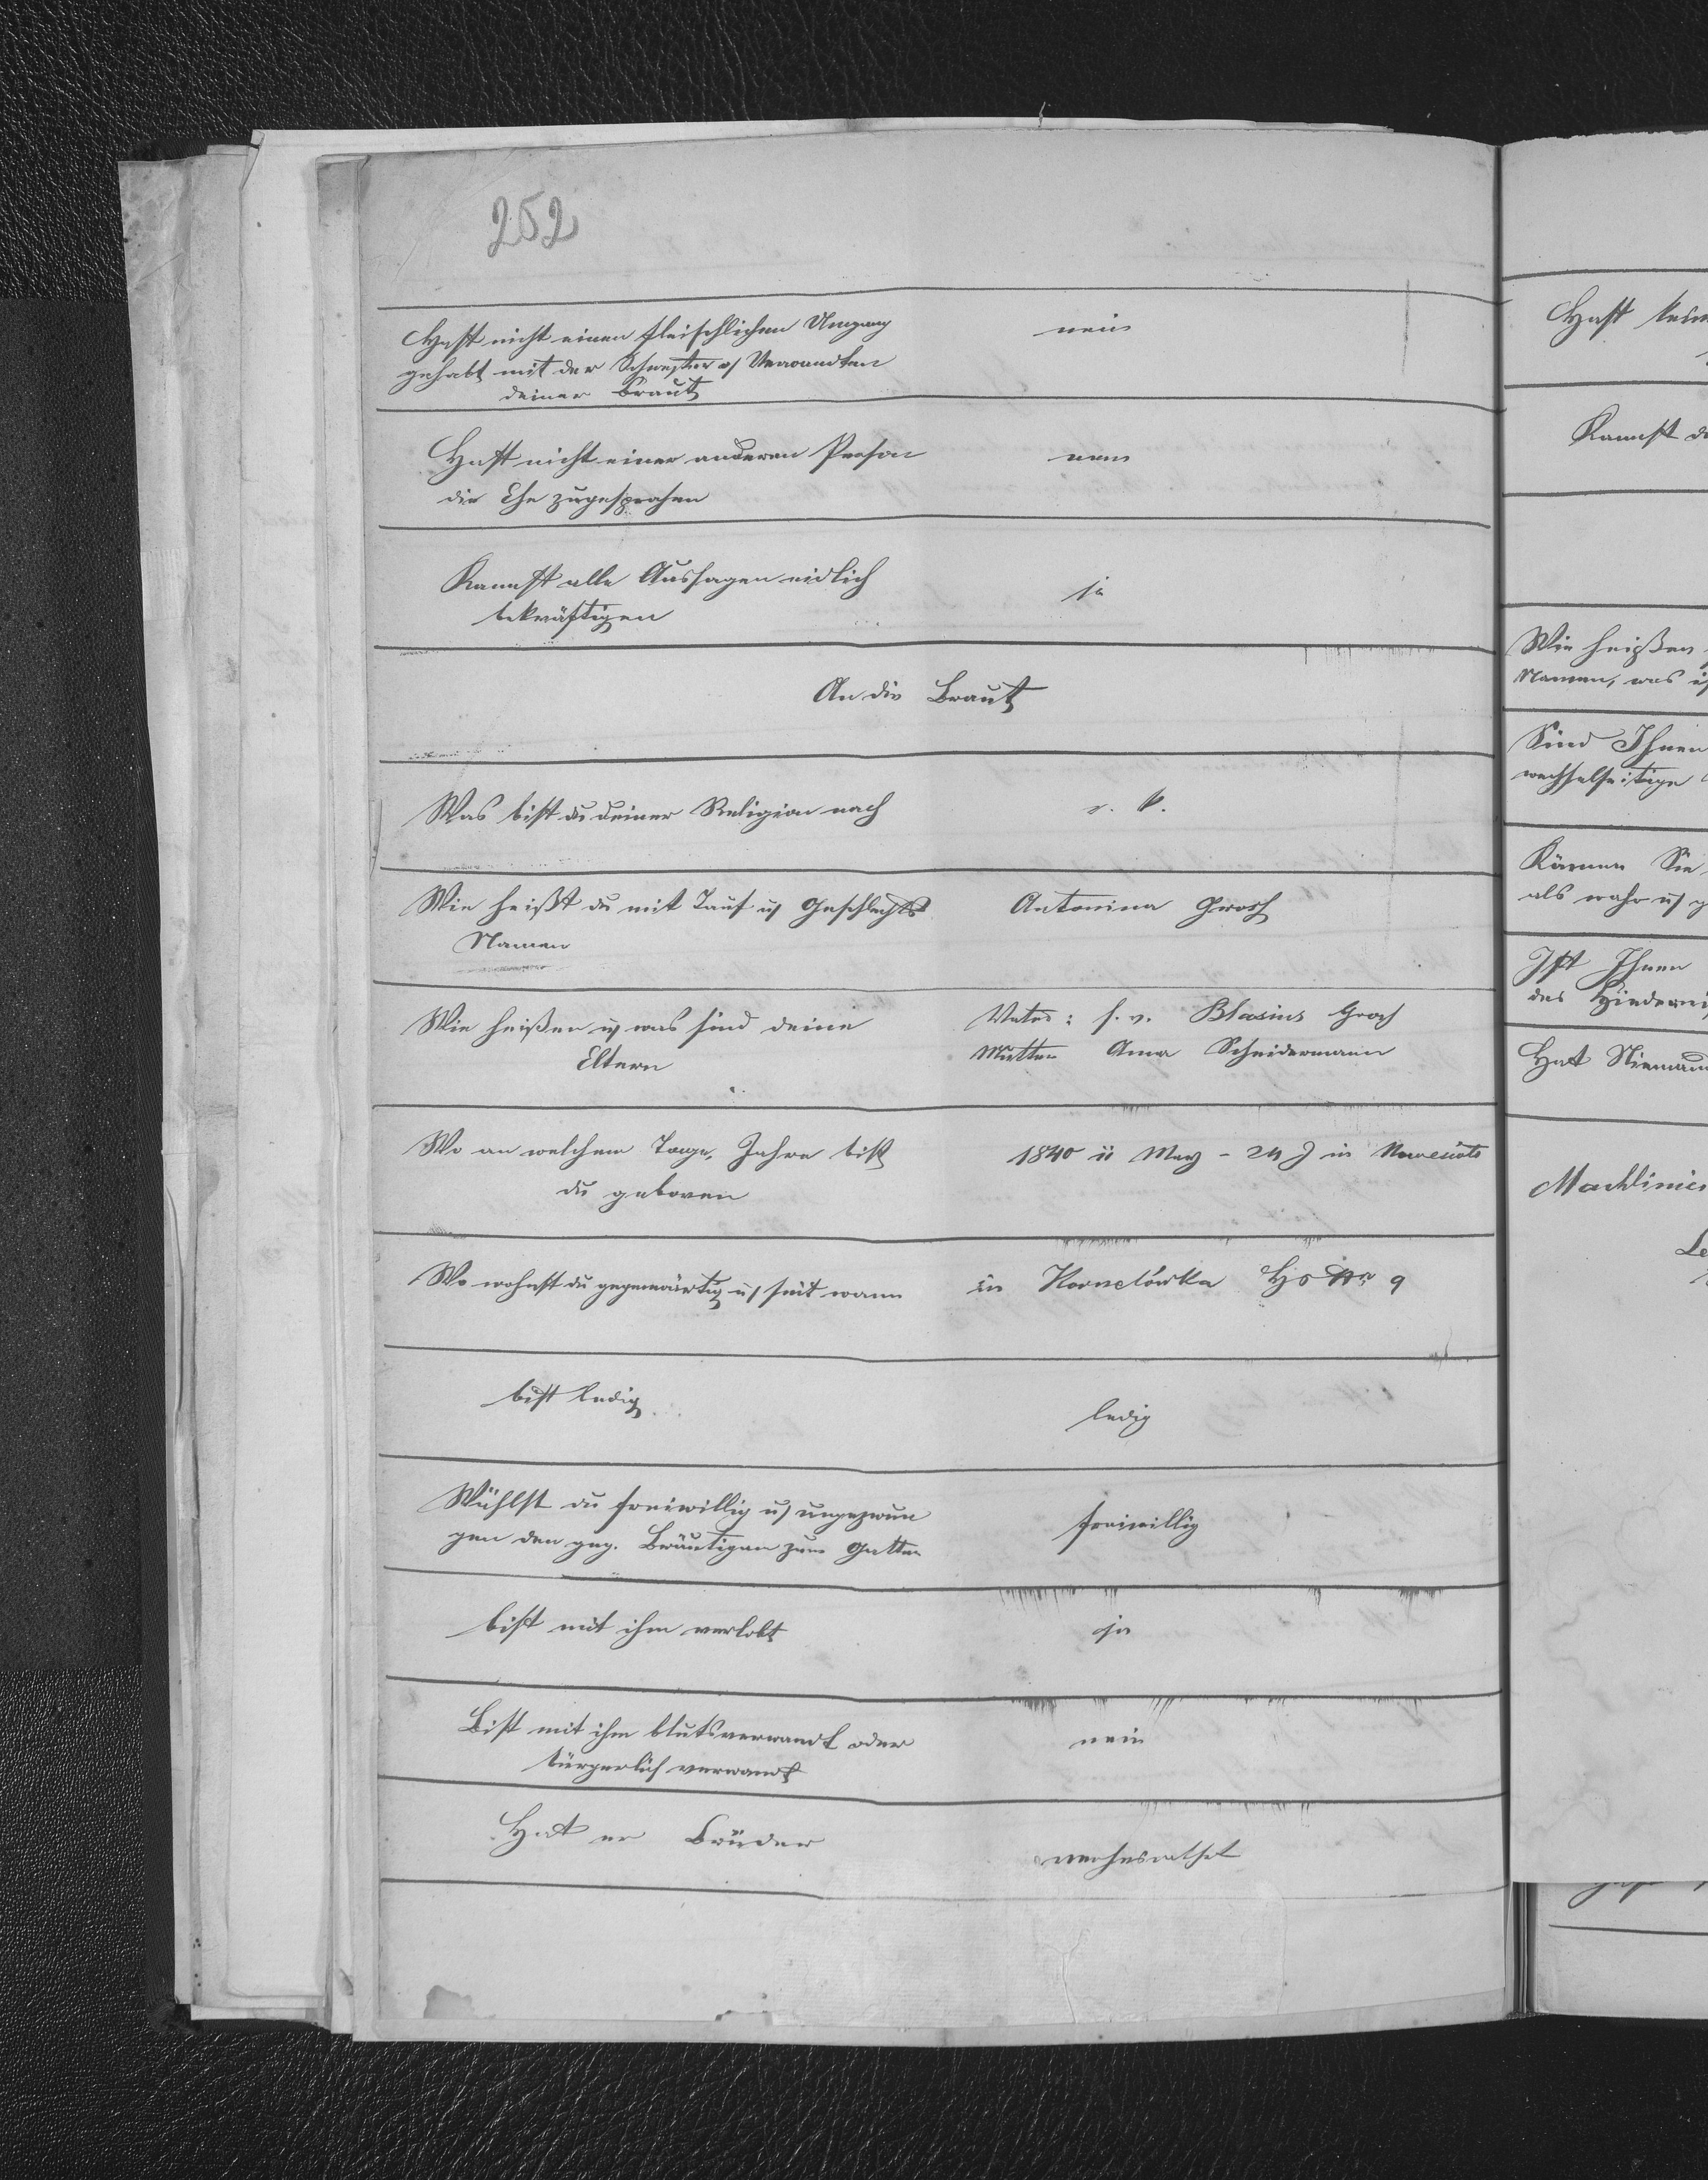 252
Hast nicht einen fleischlichen Umgang nein
gehabt mit der Schwester o/ Verwandten
deiner Braut
Hast nicht einer anderen Person nein
die Ehe zugesprochen
Kannst alle Aussagen eidlich ja
bekräftigen
An die Braut
Was bist du deiner Religion nach r. k.
Wie heißt du mit Tauf u/ Geschlechts Antonina Grosch
Namen
Wie heißen u/ was sind deine Vater: Blasius Grosch
Eltern Mutter Anna Schneidermann
Wo an welchem Tage, Jahre bist 1840 May - 24 J in
du geboren
Wo wohnst du gegenwärtig u/ seit wann in Kornelówka Hs Nr 9
bist ledig ledig
Wählst du freiwillig u/ ungezwun freiwillig
gen den geg. Bräutigam zum Gatten
bist mit ihm verlobt ja
Bist mit ihm blutsverwandt oder nein
bürgerlich verwandt
Hat er Brüder
Hast
Kannst
Wie heißen
Namen, was
Sind Ihnen
wechselseitige
Können Sie
als wahr u/
Ist Ihnen
das
Hat Niemand